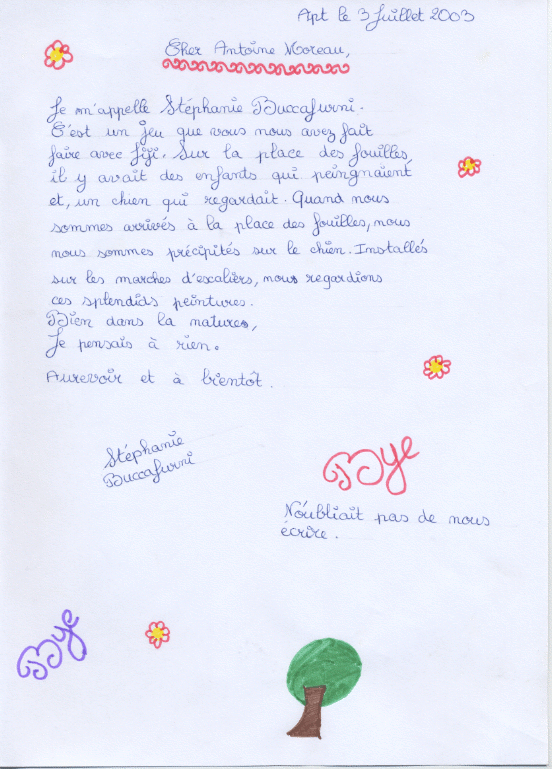 Apt le 3 Juillet 2003
Cher Antoine Moreau,
Je m'appelle Stéphanie Buccafurni.
C'est un jeu que vous nous avez fait
faire avec fiji. Sur la place des fouilles,
il y avait des enfants qui peingnaient
et, un chien qui regardait. Quand nous
sommes arrivés à la place des fouilles, nous
nous sommes précipités sur le chien. Installés
sur les marches d'escaliers, nous regardions
ces splendids peintures.
Bien dans la natures,
Je pensais à rien.
Aurevoir et à bientôt.
Stéphanie
Buccafurni
Bye
N'oubliait pas de nous
écrire.
Bye